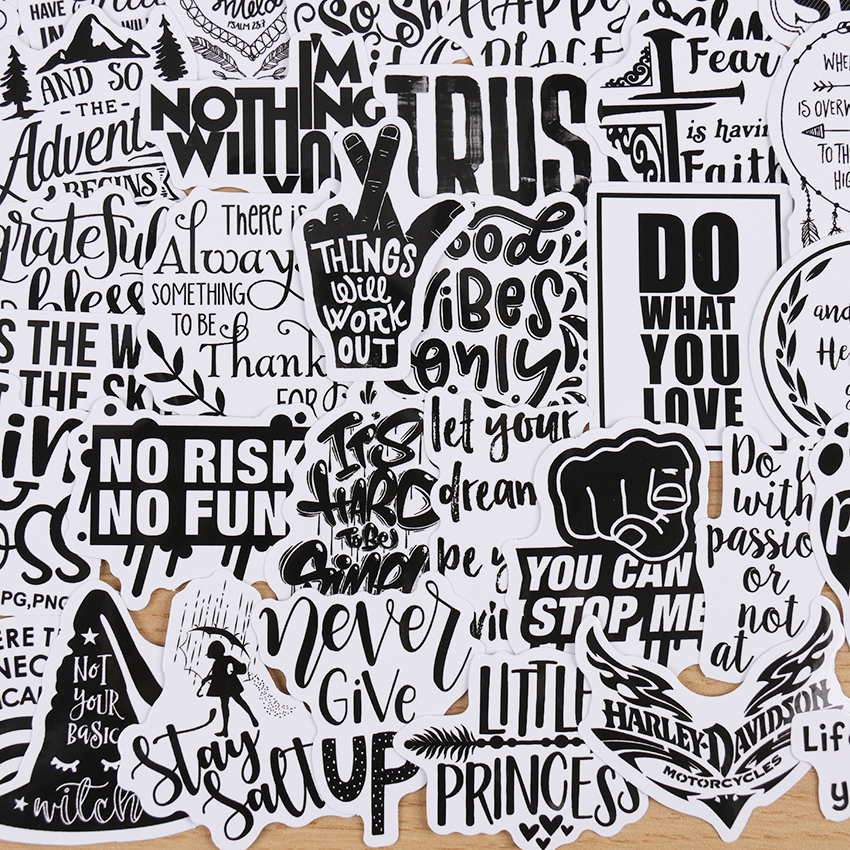 HAVE
IN
WILL
Shield
PSALM 28:7
So Sh
HAPPY
PLACE
AND SO
THE
Advent
BEGINS
I'M
NOTHING
WITH
YO
TRUS
Fear
is havin
Faith
WHEN
IS OVERW
TO TH
HIG
grateful
bless
There is
Always
SOMETHING
TO BE
Thank
FOR
THINGS
Will
WORK
OUT
Good
ViBES
only
DO
WHAT
YOU
LOVE
and
He
S THE W
T THE SK
NO RISK
NO FUN
IT'S
HARD
To Be
Simpl
let your
dream
be y
DO i
with
passio
or
not
at
YOU CAN
STOP ME
OSS
PG,PNG
ERE T
NEC
ICAL
NOT
YOUR
BASIC
witch
Stay
Salt
never
GIVE
UP
LITTLE
PRINCESS
HARLEY-DAVIDSON
MOTORCYCLES
Life
y